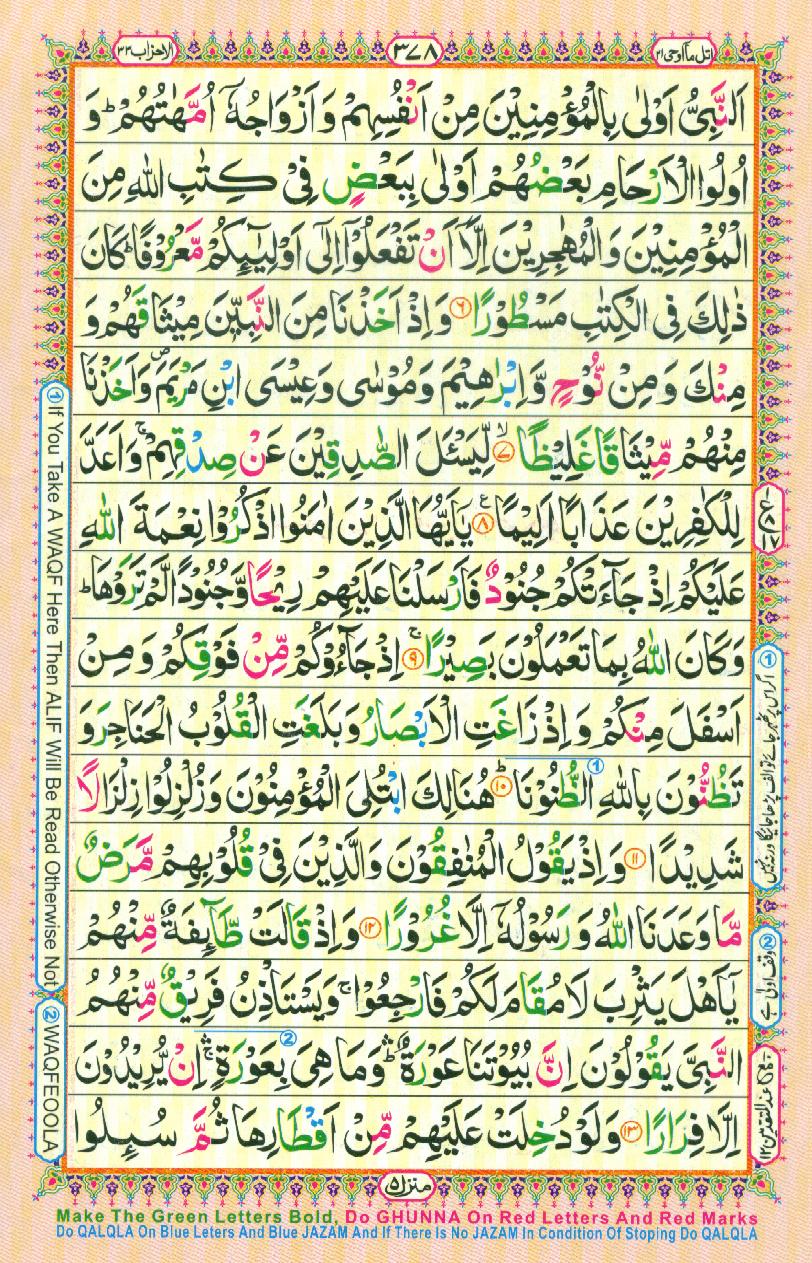 اتل ما اوحی ۲۱
۳۷۸
الاحزاب ۳۳
اَلنَّبِیُّ اَوْلٰی بِالْمُؤْمِنِیْنَ مِنْ اَنْفُسِهِمْ وَ اَزْوَاجُهٗۤ اُمَّهٰتُهُمْ ؕ وَ
اُولُوا الْاَرْحَامِ بَعْضُهُمْ اَوْلٰی بِبَعْضٍ فِیْ كِتٰبِ اللّٰهِ مِنَ
الْمُؤْمِنِیْنَ وَ الْمُهٰجِرِیْنَ اِلَّاۤ اَنْ تَفْعَلُوْۤا اِلٰۤی اَوْلِیٰٓىِٕكُمْ مَّعْرُوْفًا ؕ كَانَ
ذٰلِكَ فِی الْكِتٰبِ مَسْطُوْرًا ۶ وَ اِذْ اَخَذْنَا مِنَ النَّبِیّٖنَ مِیْثَاقَهُمْ وَ
مِنْكَ وَ مِنْ نُّوْحٍ وَّ اِبْرٰهِیْمَ وَ مُوْسٰی وَ عِیْسَی ابْنِ مَرْیَمَ ۪ وَ اَخَذْنَا
مِنْهُمْ مِّیْثَاقًا غَلِیْظًا ۷ لِّیَسْـَٔلَ الصّٰدِقِیْنَ عَنْ صِدْقِهِمْ ۚ وَ اَعَدَّ
لِلْكٰفِرِیْنَ عَذَابًا اَلِیْمًا ۸ یٰۤاَیُّهَا الَّذِیْنَ اٰمَنُوا اذْكُرُوْا نِعْمَةَ اللّٰهِ
عَلَیْكُمْ اِذْ جَآءَتْكُمْ جُنُوْدٌ فَاَرْسَلْنَا عَلَیْهِمْ رِیْحًا وَّ جُنُوْدًا لَّمْ تَرَوْهَا ؕ
وَ كَانَ اللّٰهُ بِمَا تَعْمَلُوْنَ بَصِیْرًا ۹ اِذْ جَآءُوْكُمْ مِّنْ فَوْقِكُمْ وَ مِنْ
اَسْفَلَ مِنْكُمْ وَ اِذْ زَاغَتِ الْاَبْصَارُ وَ بَلَغَتِ الْقُلُوْبُ الْحَنَاجِرَ وَ
تَظُنُّوْنَ بِاللّٰهِ الظُّنُوْنَا ۱۰ هُنَالِكَ ابْتُلِیَ الْمُؤْمِنُوْنَ وَ زُلْزِلُوْا زِلْزَالًا
شَدِیْدًا ۱۱ وَ اِذْ یَقُوْلُ الْمُنٰفِقُوْنَ وَ الَّذِیْنَ فِیْ قُلُوْبِهِمْ مَّرَضٌ
مَّا وَعَدَنَا اللّٰهُ وَ رَسُوْلُهٗۤ اِلَّا غُرُوْرًا ۱۲ وَ اِذْ قَالَتْ طَّآىِٕفَةٌ مِّنْهُمْ
یٰۤاَهْلَ یَثْرِبَ لَا مُقَامَ لَكُمْ فَارْجِعُوْا ۚ وَ یَسْتَاْذِنُ فَرِیْقٌ مِّنْهُمُ
النَّبِیَّ یَقُوْلُوْنَ اِنَّ بُیُوْتَنَا عَوْرَةٌ ۛؕ وَ مَا هِیَ بِعَوْرَةٍ ۛۚ اِنْ یُّرِیْدُوْنَ
اِلَّا فِرَارًا ۱۳ وَ لَوْ دُخِلَتْ عَلَیْهِمْ مِّنْ اَقْطَارِهَا ثُمَّ سُىِٕلُوا
منزل ۵
① If You Take A WAQF Here Then ALIF Will Be Read Otherwise Not
② WAQFEOOLA
② وقف اولی ہے
Make The Green Letters Bold, Do GHUNNA On Red Letters And Red Marks
Do QALQLA On Blue Leters And Blue JAZAM And If There Is No JAZAM In Condition Of Stoping Do QALQLA